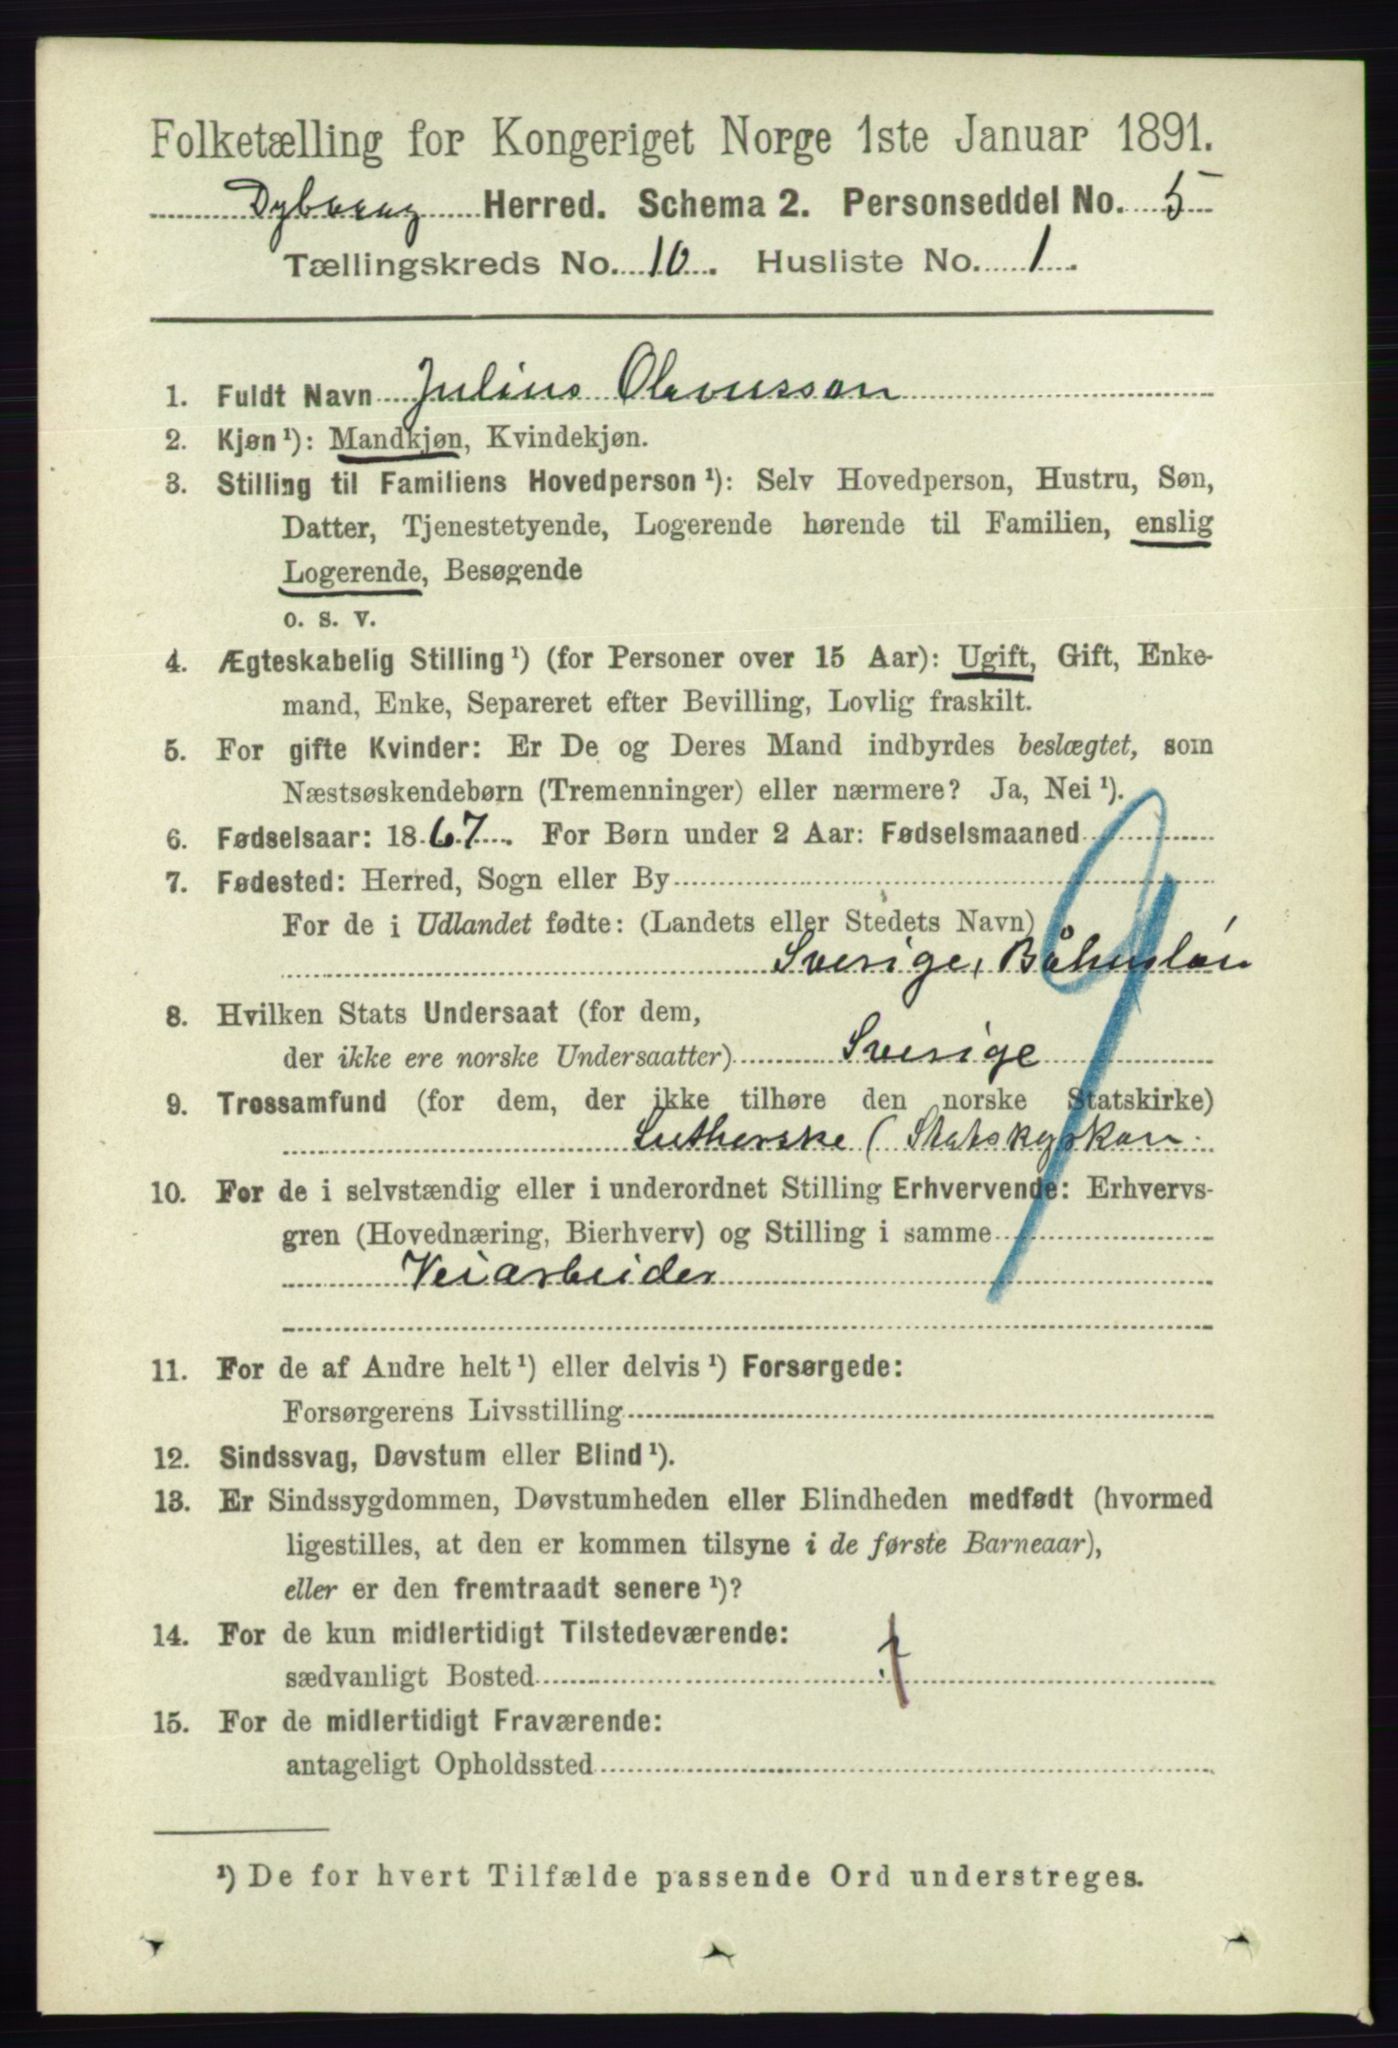 Folketælling for Kongeriget Norge 1ste Januar 1891.
Dybvaag Herred. Schema 2. Personseddel No. 5
Tællingskreds No. 10. Husliste No. 1.
1. Fuldt Navn Julius Olavussan
2. Kjøn ¹): Mandkjøn, Kvindekjøn.
3. Stilling til Familiens Hovedperson ¹): Selv Hovedperson, Hustru, Søn,
Datter, Tjenestetyende, Logerende hørende til Familien, enslig
Logerende, Besøgende
o. s. v.
4. Ægteskabelig Stilling ¹) (for Personer over 15 Aar): Ugift, Gift, Enke-
mand, Enke, Separeret efter Bevilling, Lovlig fraskilt.
5. For gifte Kvinder: Er De og Deres Mand indbyrdes beslægtet, som
Næstsøskendebørn (Tremenninger) eller nærmere? Ja, Nei ¹).
6. Fødselsaar: 1867. For Børn under 2 Aar: Fødselsmaaned
7. Fødested: Herred, Sogn eller By
For de i Udlandet fødte: (Landets eller Stedets Navn)
Sverige, Båhuslän
8. Hvilken Stats Undersaat (for dem,
der ikke ere norske Undersaatter) Sverige
9. Trossamfund (for dem, der ikke tilhøre den norske Statskirke)
Lutherske (Statskyrkan.
10. For de i selvstændig eller i underordnet Stilling Erhvervende: Erhvervs-
gren (Hovednæring, Bierhverv) og Stilling i samme
Veiarbeider
11. For de af Andre helt ¹) eller delvis ¹) Forsørgede:
Forsørgerens Livsstilling
12. Sindssvag, Døvstum eller Blind ¹).
13. Er Sindssygdommen, Døvstumheden eller Blindheden medfødt (hvormed
ligestilles, at den er kommen tilsyne i de første Barneaar),
eller er den fremtraadt senere ¹)?
14. For de kun midlertidigt Tilstedeværende:
sædvanligt Bosted
15. For de midlertidigt Fraværende:
antageligt Opholdssted
¹) De for hvert Tilfælde passende Ord understreges.